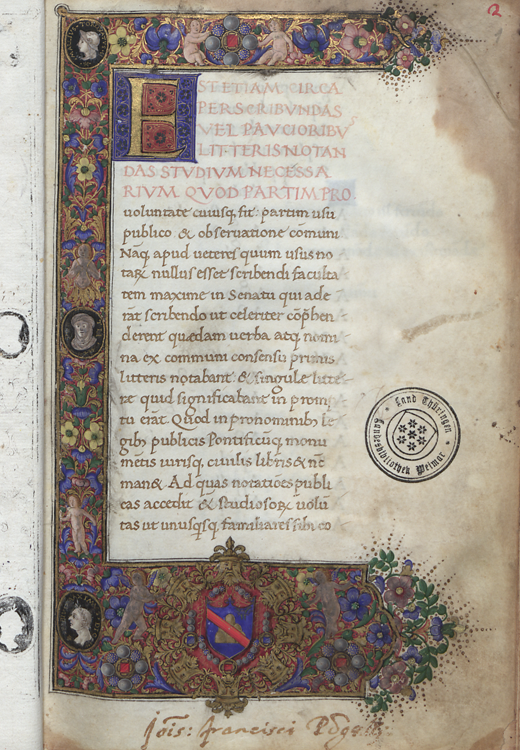 2
EST ETIAM CIRCA
PERSCRIBUNDAS
VEL PAUCIORIBVS
LITTERIS NOTAN
DAS STUDIVM NECESSA
RIVM QUOD PARTIM PRO.
voluntate cuiusq, fit: partim usu
publico & obseruatione cōmuni
Nāq, apud ueteres quum usus no
taꝝ nullus esset scribendi faculta
tem maxime in Senatu qui ade
rāt scribendo ut celeriter cōp̄hen
derent quedam uerba atq, nomi
na ex communi consensu primis
litteris notabant: & singule litte
re quid significabant in promp
tu erāt. Quod in pronominibꝫ le
gibꝫ publicis Pontificūq, monu
mētis iurisq, ciuilis libris & nc̄
man&. Ad quas notatiōes publi
cas accedit & studiosoꝝ uolū
tas ut unusqsq, familiares sibi co
Land Thüringen
Landesbibliothek Weimar
Jois: francisci